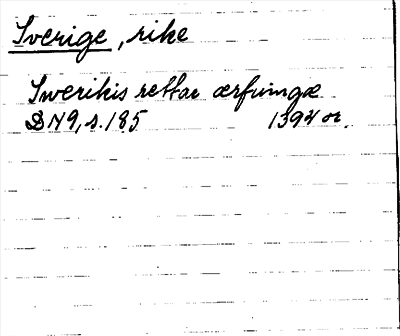 Sverige, rike
Swerikis rettar ærfuingæ
DN 9, s. 185 1394 or.